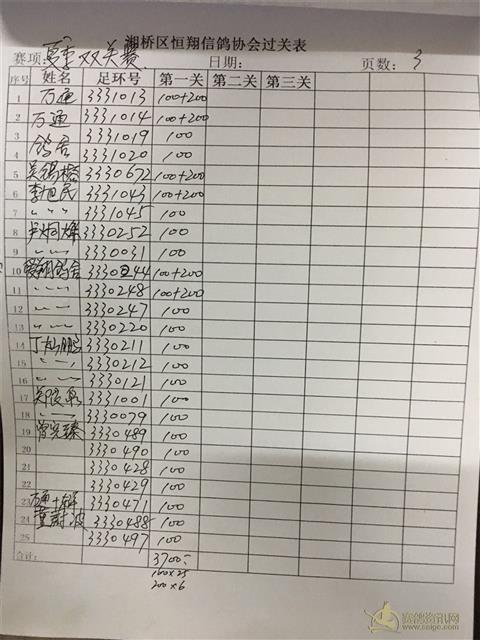 湘桥区恒翔信鸽协会过关表
赛项: 夏季双关赛 日期: 页数: 3
序号 姓名 足环号 第一关 第二关 第三关
1 万通 3331013 100+200
2 万通 3331014 100+200
3 鸽舍 3331019 100
4 3331020 100
5 3330672 100+200
6 李旭民 3331043 100+200
7 〃 〃 3331045 100
8 3330252 100
9 〃 〃 3330031 100
10 翔鸽舍 3330244 100+200
11 〃 〃 3330248 100+200
12 〃 〃 3330247 100
13 〃 〃 3330220 100
14 丁灿鹏 3330211 100
15 〃 〃 3330212 100
16 〃 〃 3330121 100
17 3331001 100
18 〃 〃 3330079 100
19 曾宪臻 3330489 100
20 3330490 100
21 3330428 100
22 3330429 100
23 3330471 100
24 3330488 100
25 3330497 100
合计: 3700-
100×25
200×6
赛鸽资讯网
www.saige.com